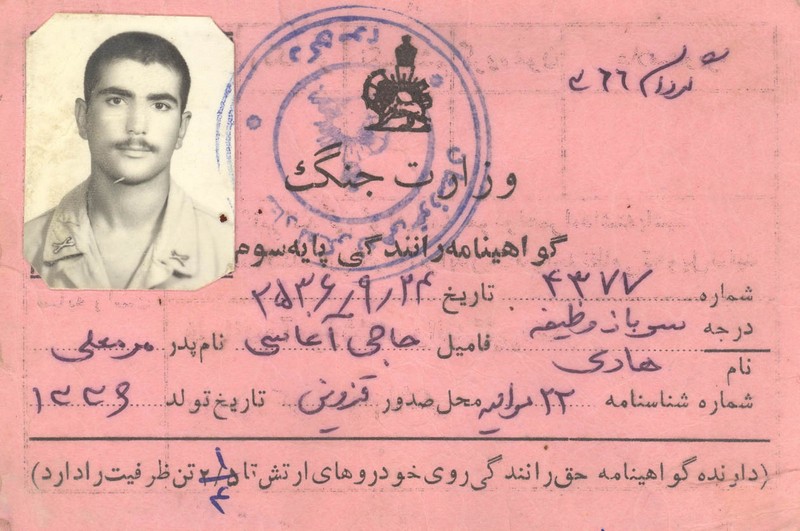 وزارت جنگ
گواهینامه رانندگی پایه سوم
شماره ۴۳۷۷ تاریخ ۲۵۳۶/۹/۲۴
درجه سرباز وظیفه فامیل حاجی آغاسی نام پدر
نام هادی
شماره شناسنامه ۲۲ محل صدور قزوین تاریخ تولد ۱۳۳۶
(دارنده گواهینامه حق رانندگی روی خودروهای ارتش تا تن ظرفیت را دارد)